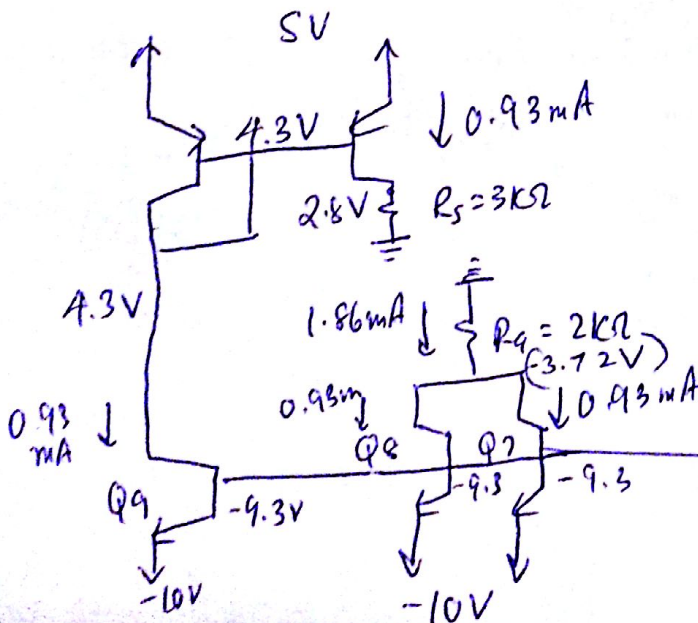 5V
4.3V
↓ 0.93mA
2.8V
R5 = 3KΩ
4.3V
1.86mA ↓
R4 = 2KΩ
(-3.72V)
0.93m ↓
↓ 0.93mA
0.93 mA ↓
Q8
Q7
Q9
-9.3V
-9.3
-9.3
-10V
-10V